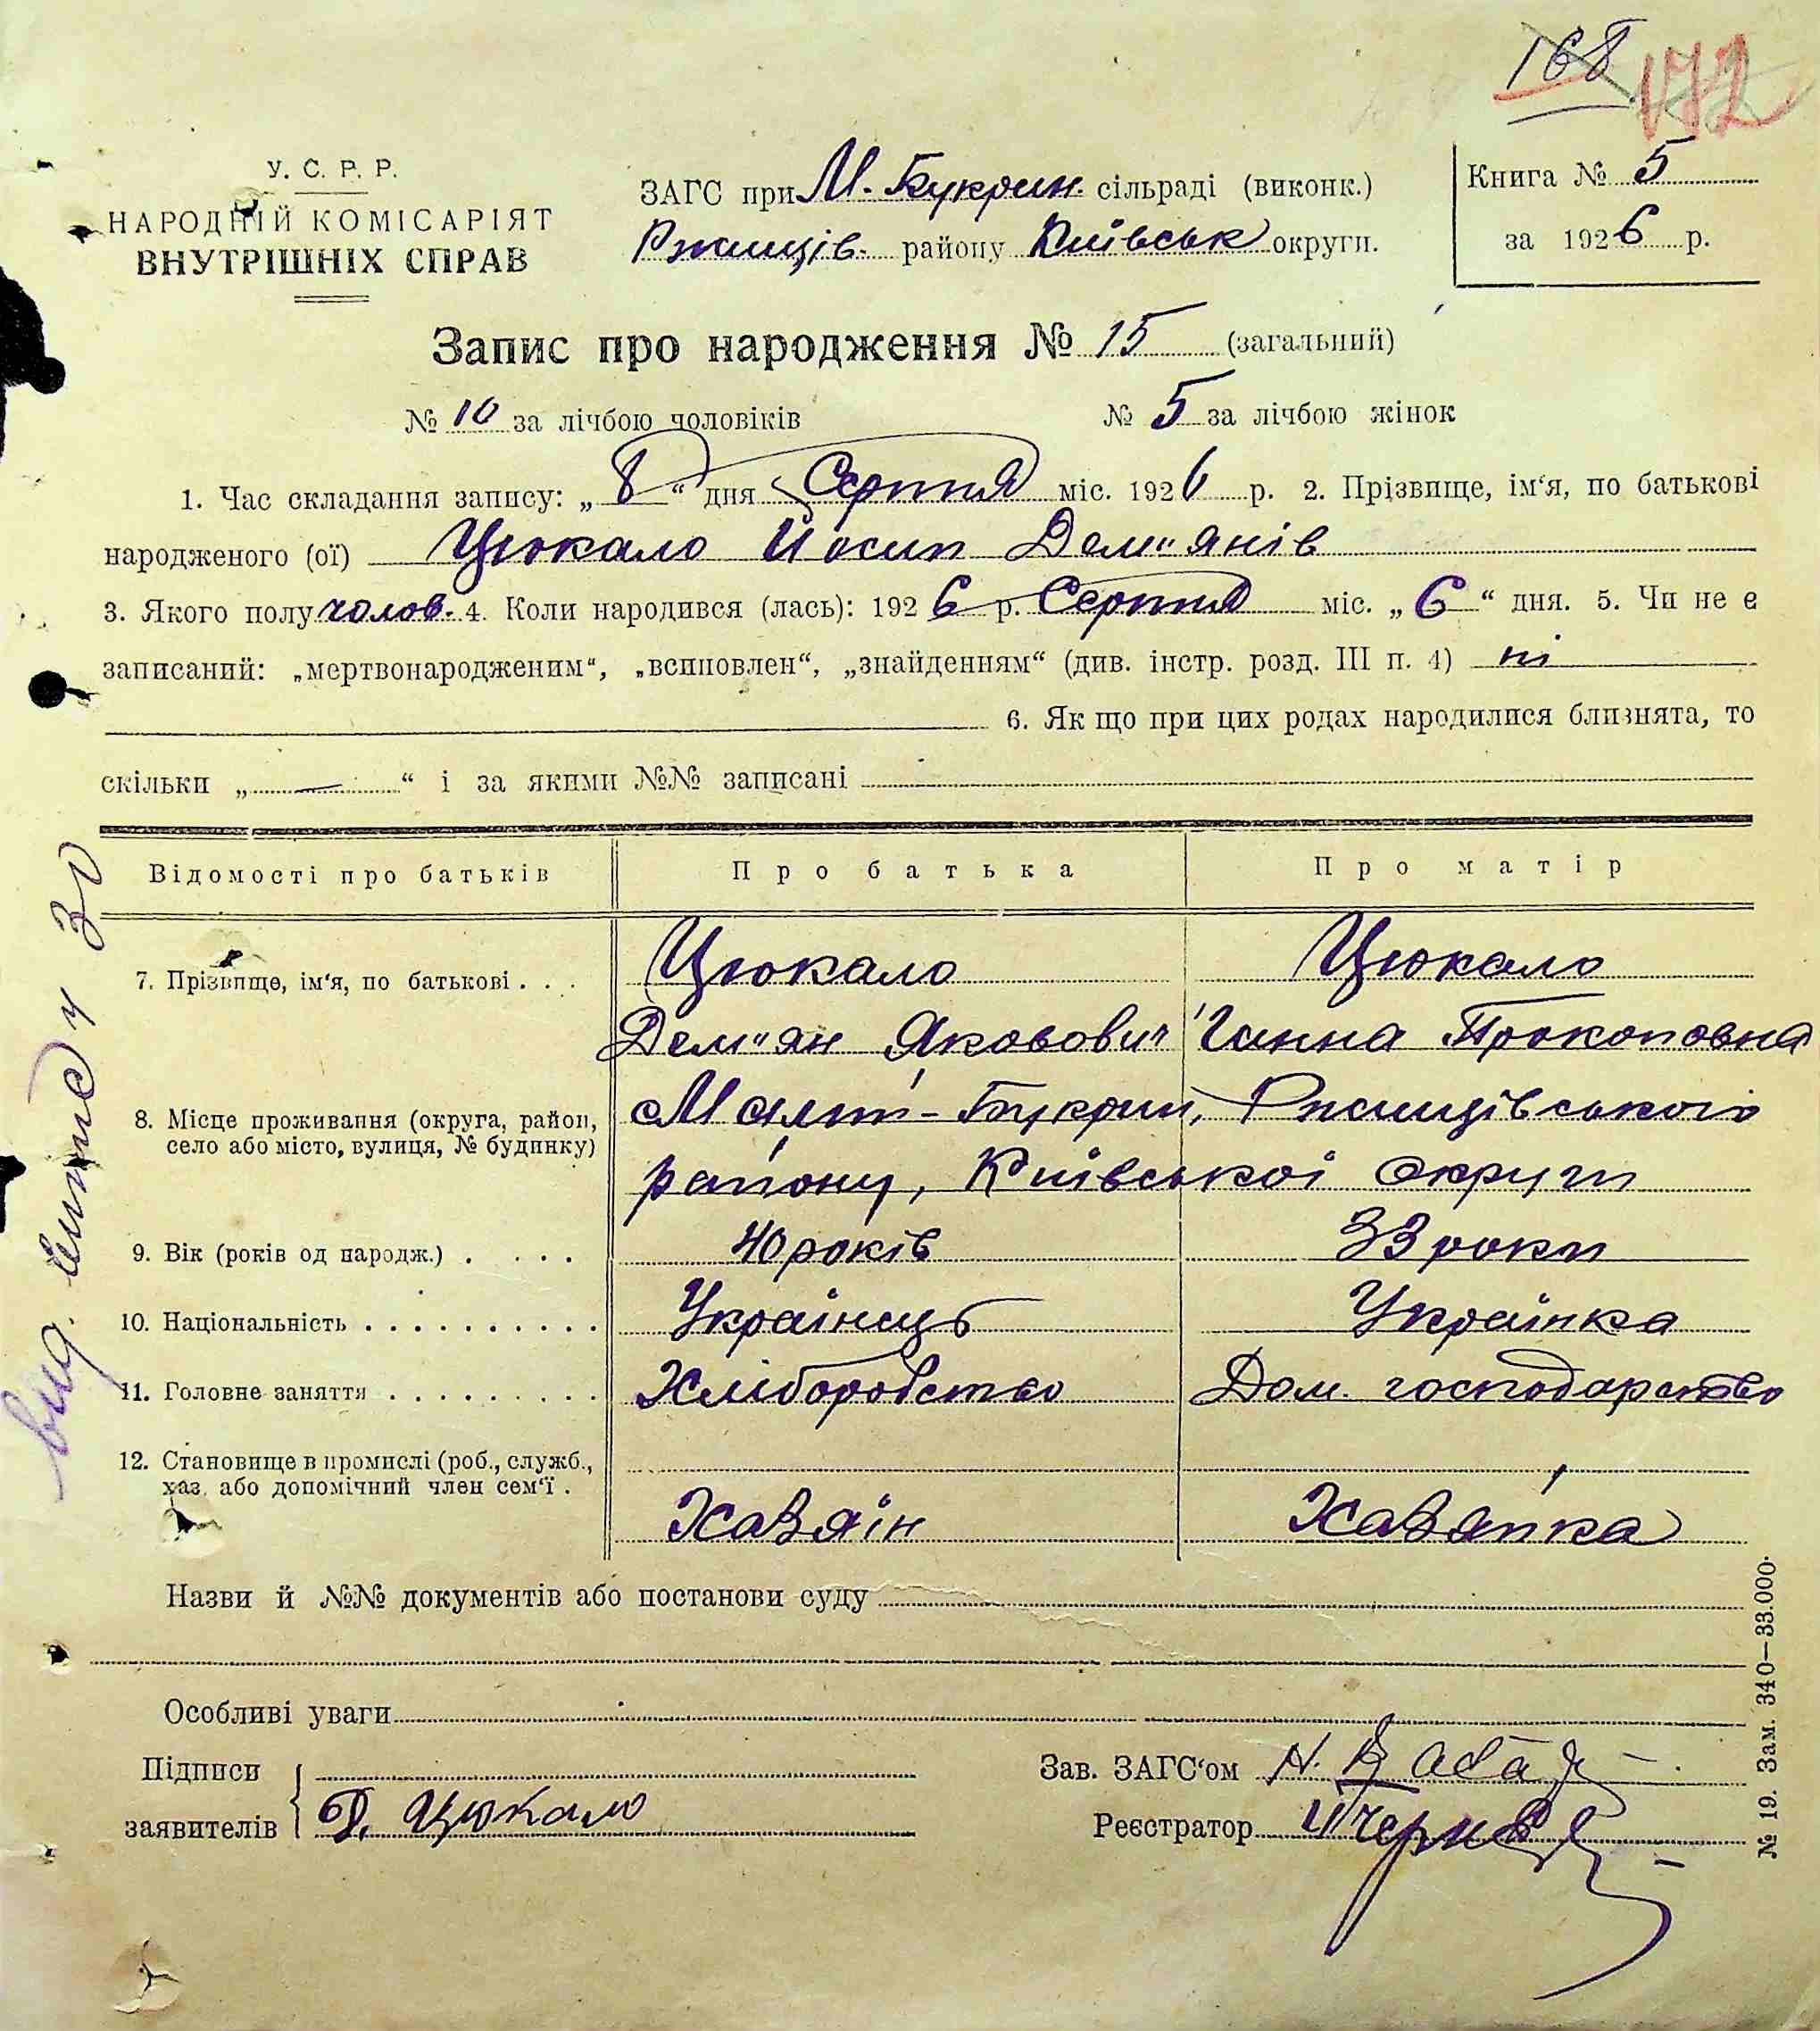 168 172
У. С. Р. Р.
НАРОДНІЙ КОМІСАРІЯТ
ВНУТРІШНІХ СПРАВ
ЗАГС при М. Букрин. сільраді (виконк.)
Ржищів. району Київськ округи.
Книга № 5
за 1926 р.
Запис про народження № 15 (загальний)
№ 10 за лічбою чоловіків № 5 за лічбою жінок
1. Час складання запису: „8“ дня Серпня міс. 1926 р. 2. Прізвище, ім‘я, по батькові
народженого (ої) Цюкало Йосип Дем"янів
3. Якого полу чолов. 4. Коли народився (лась): 1926 р. Серпня міс. „6“ дня. 5. Чи не є
записаний: „мертвонародженим“, „всиновлен“, „знайденням“ (див. інстр. розд. III п. 4) ні
6. Як що при цих родах народилися близнята, то
скільки „—“ і за якими №№ записані
Відомості про батьків Про батька Про матір
7. Прізвище, ім‘я, по батькові . . . Цюкало Цюкало
Дем"ян Якович Ганна Прокоповна
8. Місце проживання (округа, район, Малий-Букрин, Ржищівського
село або місто, вулиця, № будинку)
району, Київської округи
9. Вік (років од народж.) . . . . 40 років 33 роки
10. Національність . . . . . . . . . . Українець Українка
11. Головне заняття . . . . . . . . . Хліборобство Дом. господарство
12. Становище в промислі (роб., служб.,
хаз. або допомічний член сем‘ї .
Хазяїн Хазяйка
Назви й №№ документів або постанови суду
Особливі уваги
Підписи
заявителів Д. Цюкало
Зав. ЗАГС‘ом
Реєстратор
№ 19. Зам. 340—33.000.
вид. у ЗО